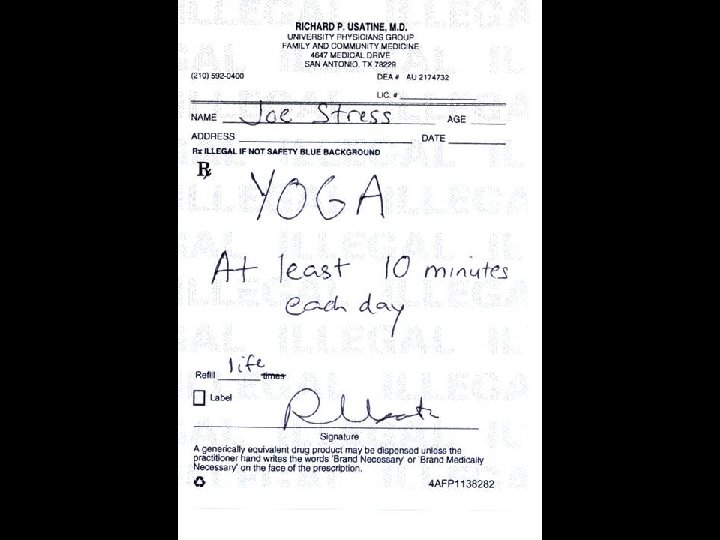 RICHARD P. USATINE, M.D.
UNIVERSITY PHYSICIANS GROUP
FAMILY AND COMMUNITY MEDICINE
4647 MEDICAL DRIVE
SAN ANTONIO, TX 78229
(210) 592-0400 DEA # AU 2174732
LIC. #
NAME Joe Stress AGE
ADDRESS DATE
Rx ILLEGAL IF NOT SAFETY BLUE BACKGROUND
Rx
YOGA
At least 10 minutes
each day
Refill life times
Label
RUsatine
Signature
A generically equivalent drug product may be dispensed unless the
practitioner hand writes the words 'Brand Necessary' or 'Brand Medically
Necessary' on the face of the prescription.
4AFP1138282